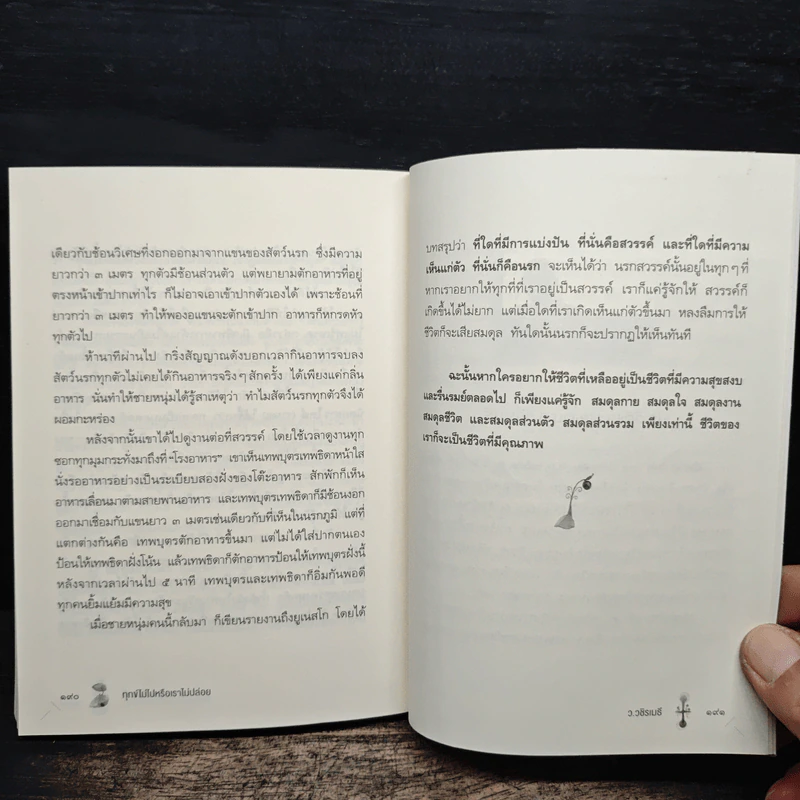 เดียวกับช้อนวิเศษที่งอกออกมาจากแขนของสัตว์นรก ซึ่งมีความ
ยาวกว่า ๓ เมตร ทุกตัวมีช้อนส่วนตัว แต่พยายามตักอาหารที่อยู่
ตรงหน้าเข้าปากเท่าไร ก็ไม่อาจเอาเข้าปากตัวเองได้ เพราะช้อนที่
ยาวกว่า ๓ เมตร ทำให้พองอแขนจะตักเข้าปาก อาหารก็หกรดหัว
ทุกตัวไป
ห้านาทีผ่านไป กริ่งสัญญาณดังบอกเวลากินอาหารจบลง
สัตว์นรกทุกตัวไม่เคยได้กินอาหารจริงๆ สักครั้ง ได้เพียงแค่กลิ่น
อาหาร นั่นทำให้ชายหนุ่มได้รู้สาเหตุว่า ทำไมสัตว์นรกทุกตัวจึงได้
ผอมกะหร่อง
หลังจากนั้นเขาได้ไปดูงานต่อที่สวรรค์ โดยใช้เวลาดูงานทุก
ซอกทุกมุมกระทั่งมาถึงที่ “โรงอาหาร” เขาเห็นเทพบุตรเทพธิดาหน้าใส
นั่งรออาหารอย่างเป็นระเบียบสองฝั่งของโต๊ะอาหาร สักพักก็เห็น
อาหารเลื่อนมาตามสายพานอาหาร และเทพบุตรเทพธิดาก็มีช้อนงอก
ออกมาเชื่อมกับแขนยาว ๓ เมตรเช่นเดียวกับที่เห็นในนรกภูมิ แต่ที่
แตกต่างกันคือ เทพบุตรตักอาหารขึ้นมา แต่ไม่ได้ใส่ปากตนเอง
ป้อนให้เทพธิดาฝั่งโน้น แล้วเทพธิดาก็ตักอาหารป้อนให้เทพบุตรฝั่งนี้
หลังจากเวลาผ่านไป ๕ นาที เทพบุตรและเทพธิดาก็อิ่มกันพอดี
ทุกคนยิ้มแย้มมีความสุข
เมื่อชายหนุ่มคนนี้กลับมา ก็เขียนรายงานถึงยูเนสโก โดยได้
๑๙๐ ทุกข์ไม่ไปหรือเราไม่ปล่อย
บทสรุปว่า ที่ใดที่มีการแบ่งปัน ที่นั่นคือสวรรค์ และที่ใดที่มีความ
เห็นแก่ตัว ที่นั่นก็คือนรก จะเห็นได้ว่า นรกสวรรค์นั้นอยู่ในทุกๆ ที่
หากเราอยากให้ทุกที่ที่เราอยู่เป็นสวรรค์ เราก็แค่รู้จักให้ สวรรค์ก็
เกิดขึ้นได้ไม่ยาก แต่เมื่อใดที่เราเกิดเห็นแก่ตัวขึ้นมา หลงลืมการให้
ชีวิตก็จะเสียสมดุล ทันใดนั้นนรกก็จะปรากฏให้เห็นทันที
ฉะนั้นหากใครอยากให้ชีวิตที่เหลืออยู่เป็นชีวิตที่มีความสุขสงบ
และรื่นรมย์ตลอดไป ก็เพียงแค่รู้จัก สมดุลกาย สมดุลใจ สมดุลงาน
สมดุลชีวิต และสมดุลส่วนตัว สมดุลส่วนรวม เพียงเท่านี้ ชีวิตของ
เราก็จะเป็นชีวิตที่มีคุณภาพ
ว.วชิรเมธี ๑๙๑